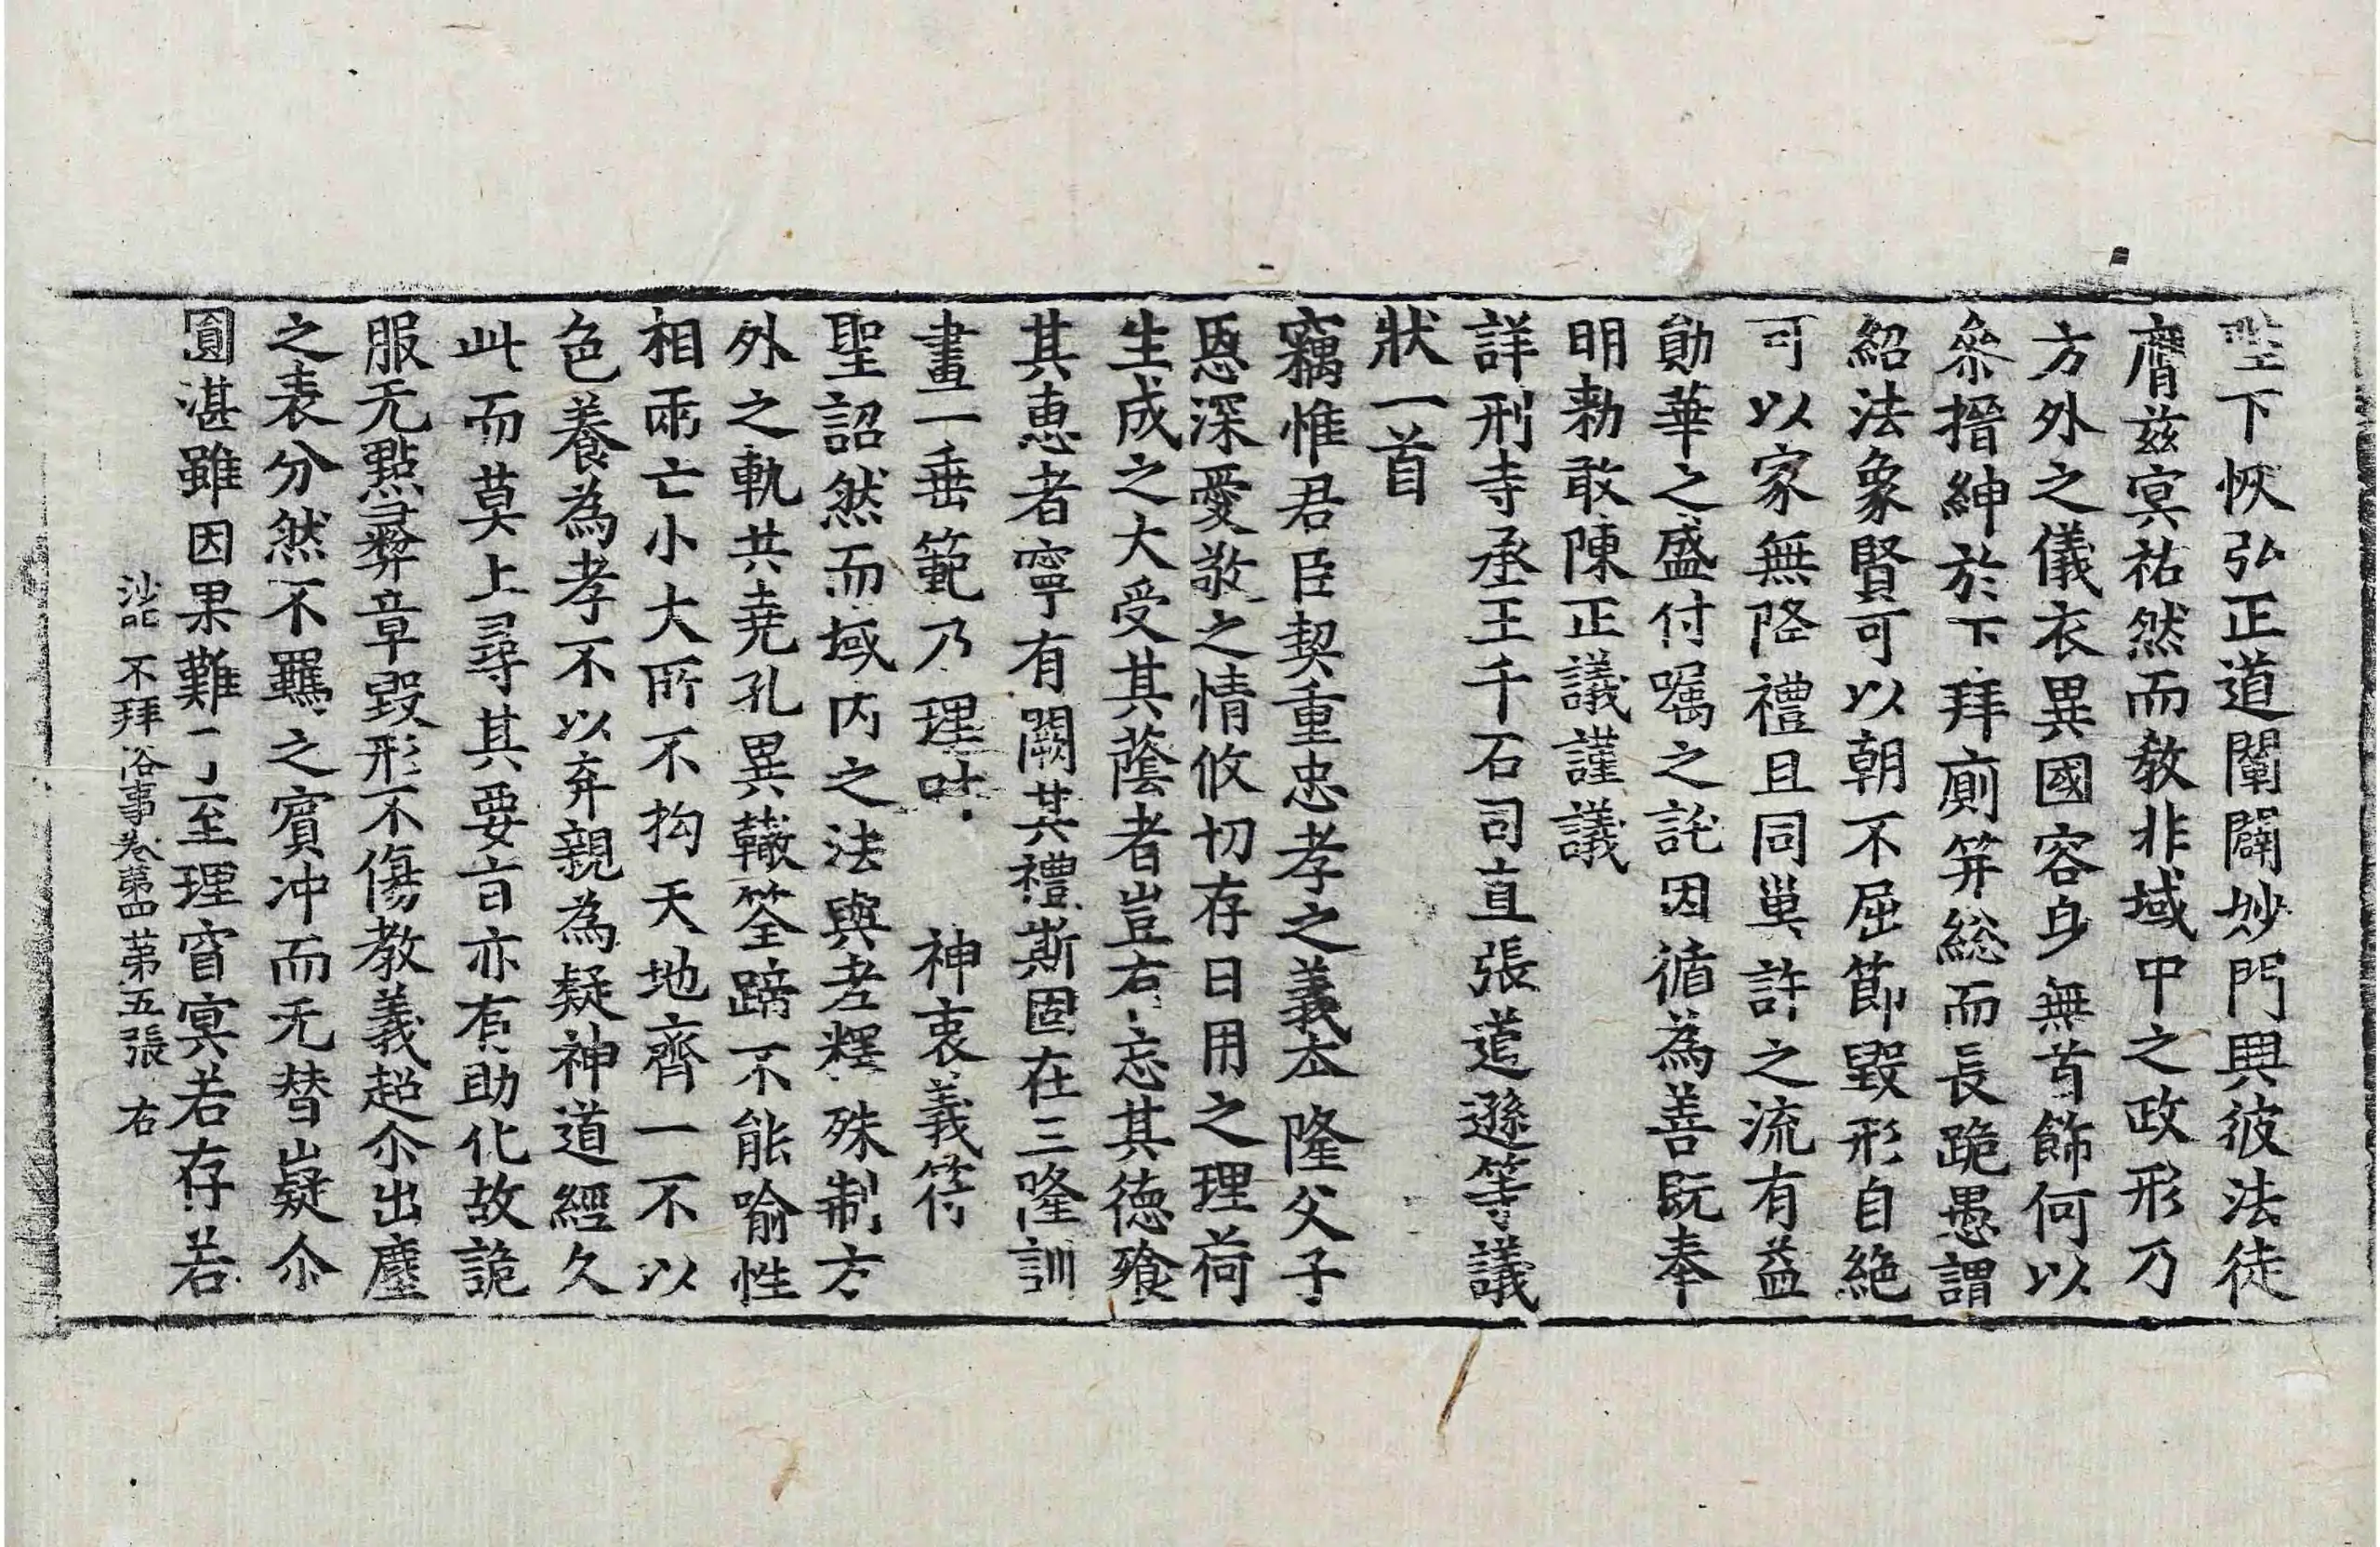 陛下恢弘正道闡闢妙門興彼法徒
膺茲冥祐然而教非域中之政形乃
方外之儀衣異國容身無首飾何以
叅搢紳於下拜廁笄総而長跪愚謂
紹法象賢可以朝不屈節毀形自絶
可以家無降禮且同巢許之流有益
勛華之盛付囑之託因循為善旣奉
明勅敢陳正議謹議
詳刑寺丞王千石司直張道遜等議
狀一首
竊惟君臣契重忠孝之義夲隆父子
恩深愛敬之情攸切存日用之理荷
生成之大受其蔭者豈右忘其德飡
其惠者寜有闕其禮斯固在三隆訓
畫一垂範乃理叶神衷義符
聖詔然而域内之法與老釋殊制方
外之軌共尭孔異轍筌蹄不能喻性
相兩亡小大所不拘天地齊一不以
色養為孝不以弃親為疑神道經久
此而莫上尋其要旨亦有助化故詭
服无點彛章毀形不傷教義超尒出塵
之表分然不羈之賔冲而无替嶷尒
圓湛雖因果難了至理窅冥若存若
沙門不拜俗事卷第四第五張 右